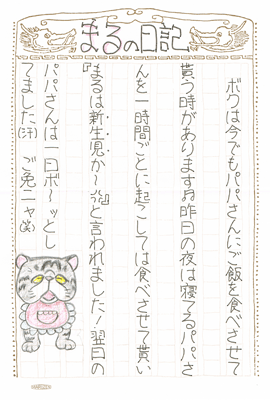 まるの日記
ボクは今でもパパさんにご飯を食べさせて
貰う時がありますね昨日の夜は寝てるパパさ
んを一時間ごとに起こしては食べさせて貰い
『まるは新生児か〜っ』と言われました！翌日の
パパさんは一日ボ〜ッとし
てました(汗) ご免ニャ(笑)